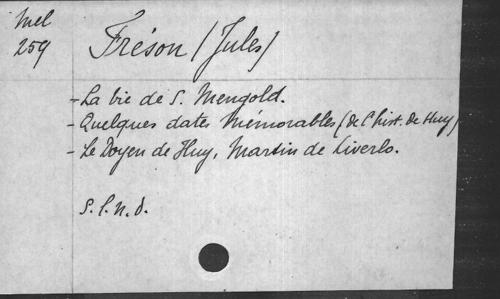 Mel
259
Fréson (Jules)
- La vie de S. Mengold.
- Quelques dates mémorables (de l'hist. de Huy)
- Le Doyen de Huy, Martin de Liverlo.
s.l.n.d.